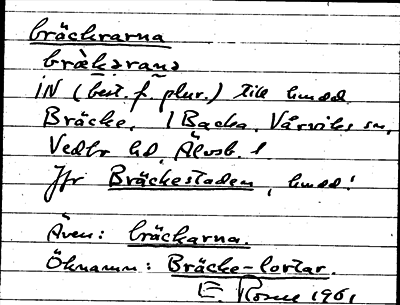 bräckrarna
bràkərana
iN (best. f. plur.) till hmdd
Bräcke, i Backa, Vårviks sn,
Vedbo hd, Älvsb. l
Jfr Bräckestaden, hmdd!
Även: bräckarna.
Öknamn: Bräcke-lortar.
E. Rosne 1961